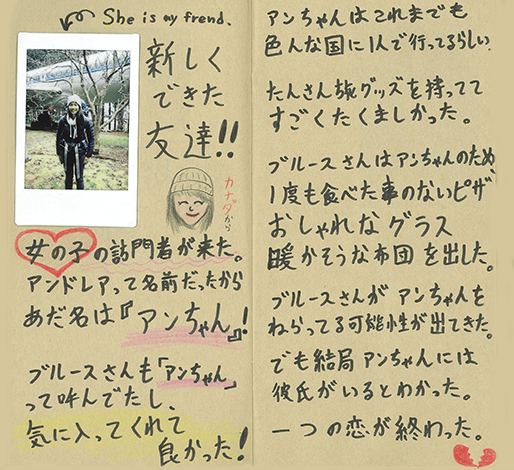 She is my frend.
新しく
できた
友達!!
カナダから
女の子の訪門者が来た。
アンドレアって名前だったから
あだ名は『アンちゃん』!
ブルースさんも「アンちゃん」
って呼んでたし、
気に入ってくれて
良かった!
アンちゃんはこれまでも
色んな国に1人で行ってるらしい。
たんさん旅グッズを持ってて
すごくたくましかった。
ブルースさんはアンちゃんのため、
1度も食べた事のないピザ、
おしゃれなグラス
暖かそうな布団を出した。
ブルースさんがアンちゃんを
ねらってる可能性が出てきた。
でも結局アンちゃんには
彼氏がいるとわかった。
一つの恋が終わった。